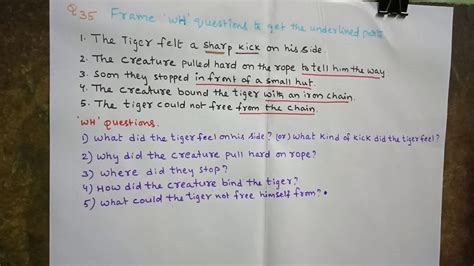 Q35 Frame 'WH' questions to get the underlined parts
1. The Tiger felt a sharp kick on his side
2. The creature pulled hard on the rope to tell him the way
3. Soon they stopped in front of a small hut.
4. The creature bound the tiger with an iron chain.
5. The tiger could not free from the chain.
'WH' questions.
1) What did the tiger feel on his side? (or) what kind of kick did the tiger feel?
2) Why did the creature pull hard on rope?
3) where did they stop?
4) How did the creature bind the tiger?
5) what could the tiger not free himself from?